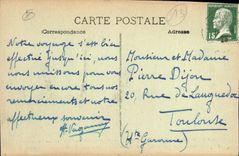 CARTE POSTALE
Correspondance
Adresse
Notre voyage s'est bien
effectué jusqu'ici, nous
nous unissons pour vous
envoyer encore tous nos
remerciements et notre
affectueux souvenir
Monsieur et Madame
Pierre Dijon
20, Rue de Languedoc
Toulouse
(Hte Garonne)
15c